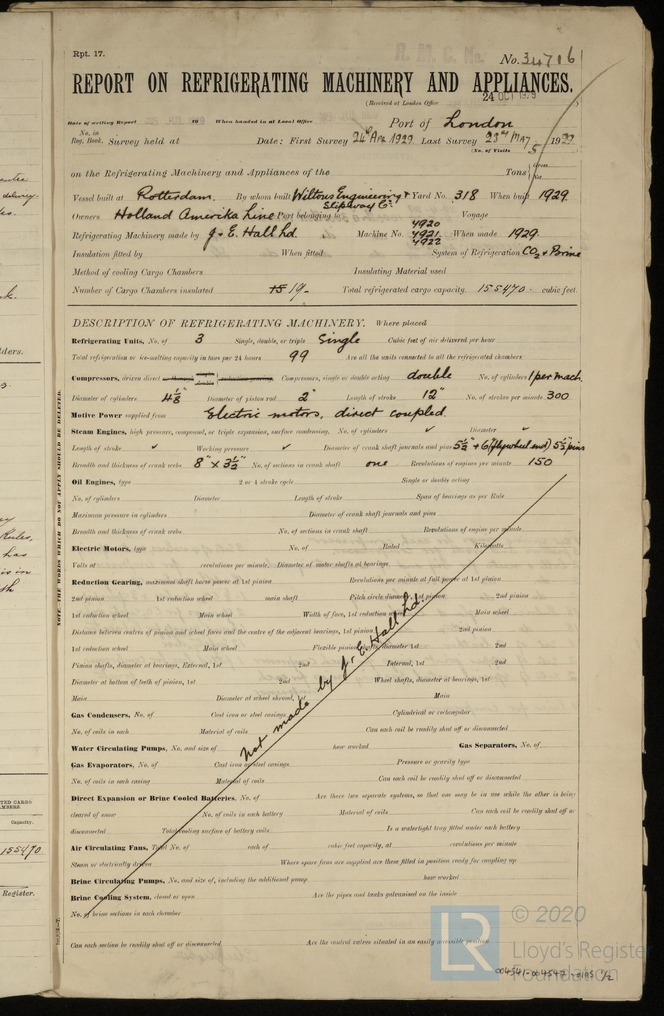 Rpt. 17.
No. 34716
REPORT ON REFRIGERATING MACHINERY AND APPLIANCES.
(Received at London Office 24 OCT 1929 )
Date of writing Report 19 When handed in at Local Office Port of London
No. in Reg. Book. Survey held at Date: First Survey 24th Apr 1929 Last Survey 23rd May 1929
(No. of Visits 5 )
on the Refrigerating Machinery and Appliances of the Tons
Vessel built at Rotterdam. By whom built Wiltons Engineering & Slipway Co. Yard No. 318 When built 1929.
Owners Holland Amerika Line Port belonging to Voyage
Refrigerating Machinery made by J. & E. Hall Ld. Machine No. 4920 4921 4922 When made 1929.
Insulation fitted by When fitted System of Refrigeration CO2 & Brine
Method of cooling Cargo Chambers Insulating Material used
Number of Cargo Chambers insulated 15 19. Total refrigerated cargo capacity. 155470. cubic feet.
DESCRIPTION OF REFRIGERATING MACHINERY. Where placed
Refrigerating Units, No. of 3 Single, double, or triple Single Cubic feet of air delivered per hour
Total refrigeration or ice-melting capacity in tons per 24 hours 99 Are all the units connected to all the refrigerated chambers
Compressors, driven direct Compressors, single or double acting double No. of cylinders 1 per mach.
Diameter of cylinders 4 1/8" Diameter of piston rod 2" Length of stroke 12" No. of strokes per minute 300
Motive Power supplied from Electric motors, direct coupled.
Steam Engines, high pressure, compound, or triple expansion, surface condensing. No. of cylinders ✓ Diameter ✓
Length of stroke ✓ Working pressure ✓ Diameter of crank shaft journals and pins 5 1/2" & 6" (flywheel end) 5 1/2" pins
Breadth and thickness of crank webs 8" x 3 1/2" No. of sections in crank shaft one Revolutions of engine per minute 150
Oil Engines, type 2 or 4 stroke cycle Single or double acting
No. of cylinders Diameter Length of stroke Span of bearings as per Rule
Maximum pressure in cylinders Diameter of crank shaft journals and pins
Breadth and thickness of crank webs No. of sections in crank shaft Revolutions of engine per minute
Electric Motors, type No. of Rated Kilowatts
Volts at revolutions per minute. Diameter of motor shafts at bearings
Reduction Gearing, maximum shaft horse power at 1st pinion Revolutions per minute at full power at 1st pinion
2nd pinion 1st reduction wheel main shaft Pitch circle diameter, 1st pinion 2nd pinion
1st reduction wheel Main wheel Width of face, 1st reduction wheel Main wheel
Distance between centres of pinion and wheel faces and the centre of the adjacent bearings, 1st pinion 2nd pinion
1st reduction wheel Main wheel Flexible pinion shafts, diameter 1st 2nd
Pinion shafts, diameter at bearings, External, 1st 2nd Internal, 1st 2nd
Diameter at bottom of teeth of pinion, 1st 2nd Wheel shafts, diameter at bearings, 1st
Main Diameter at wheel shroud, 1st Main
Not made by J. & E. Hall Ld.
Gas Condensers, No. of Cast iron or steel casings Cylindrical or rectangular
No. of coils in each Material of coils Can each coil be readily shut off or disconnected
Water Circulating Pumps, No. and size of how worked Gas Separators, No. of
Gas Evaporators, No. of Cast iron or steel casings Pressure or gravity type
No. of coils in each casing Material of coils Can each coil be readily shut off or disconnected
Direct Expansion or Brine Cooled Batteries, No. of Are there two separate systems, so that one may be in use while the other is being
cleared of snow No. of coils in each battery Material of coils Can each coil be readily shut off or
disconnected Total cooling surface of battery coils Is a watertight tray fitted under each battery
Air Circulating Fans, Total No. of each of cubic feet capacity, at revolutions per minute
Steam or electrically driven Where spare fans are supplied are these fitted in position ready for coupling up
Brine Circulating Pumps, No. and size of, including the additional pump how worked
Brine Cooling System, closed or open Are the pipes and tanks galvanised on the inside
No. of brine sections in each chamber
Can each section be readily shut off or disconnected Are the control valves situated in an easily accessible position
NOTE.—THE WORDS WHICH DO NOT APPLY SHOULD BE DELETED.
155470
Capacity.
Register.
LR
© 2020
Lloyd's Register
Foundation
004541-004547-0105 1/2